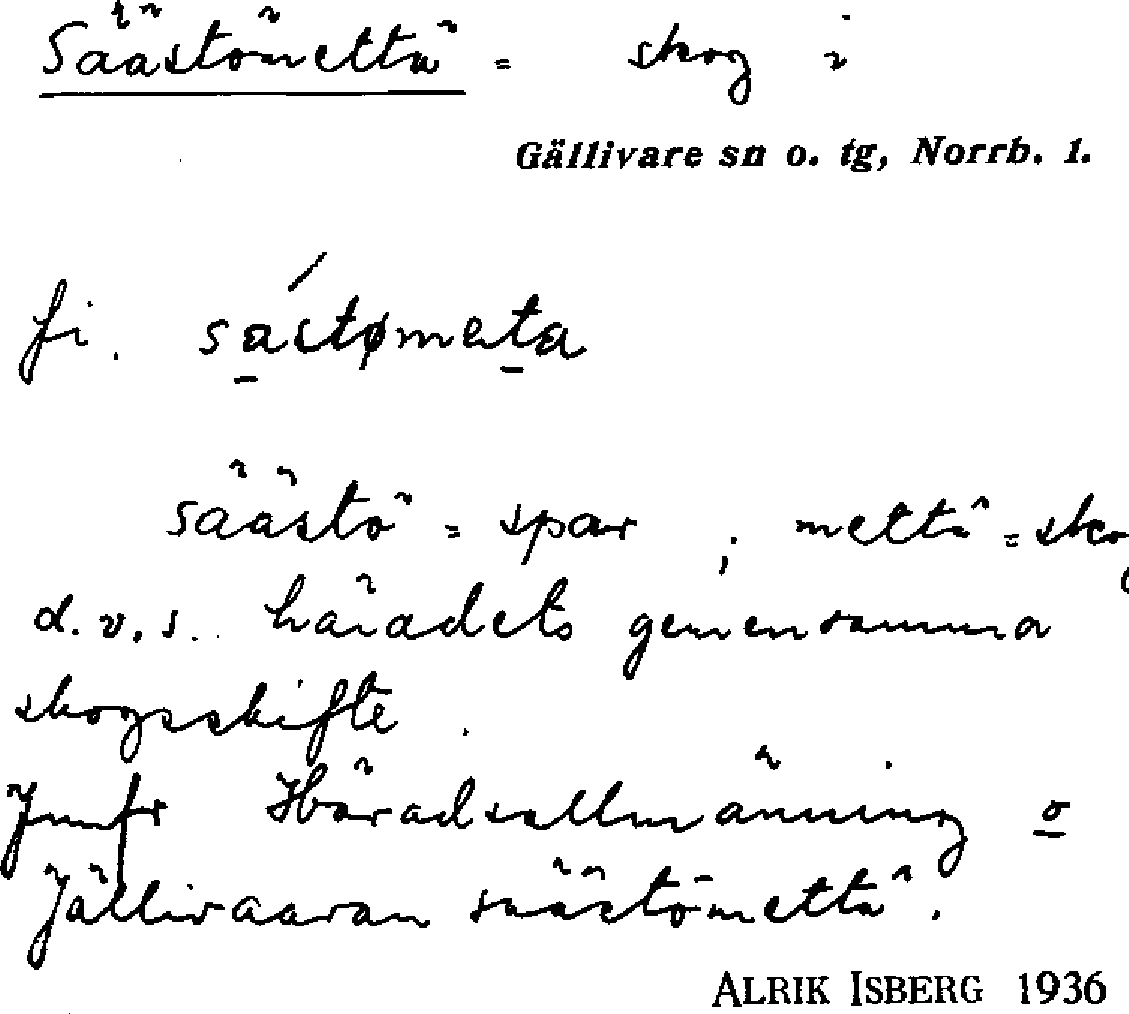 Säästömettä = skog i
Gällivare sn o. tg, Norrb. 1.
fi. sástømeta
säästö = spar ; mettä = skog
d.v.s. häradets gemensamma
skogsskifte.
Jmfr Häradsallmänning o
Jällivaaran säästömettä.
ALRIK ISBERG 1936